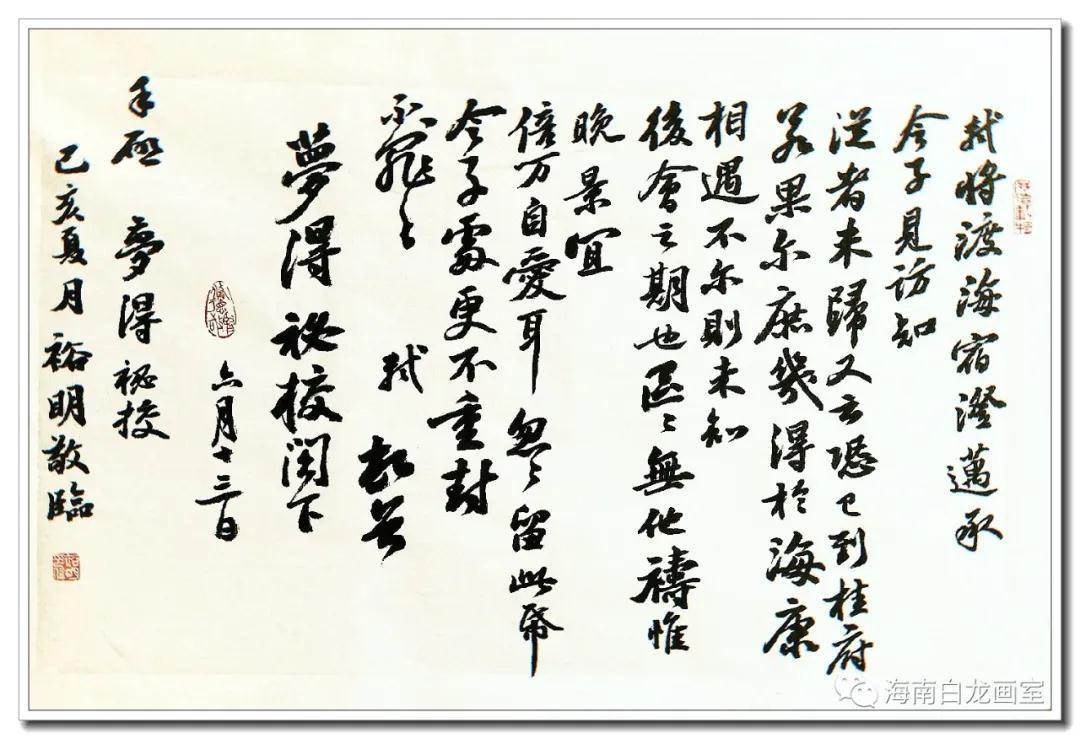 軾將渡海宿澄邁承
令子見訪知
從者未歸又云恐已到桂府
若果尔庶幾得於海康
相遇不尔則未知
後會之期也區〻無他禱惟
晚景宜
倍万自愛耳忽〻留此帋
令子處更不重封
不罪〻 軾 頓首
夢得祕校閣下
六月十三日
手啟 夢得祕校
己亥夏月裕明敬臨
海南白龙画室